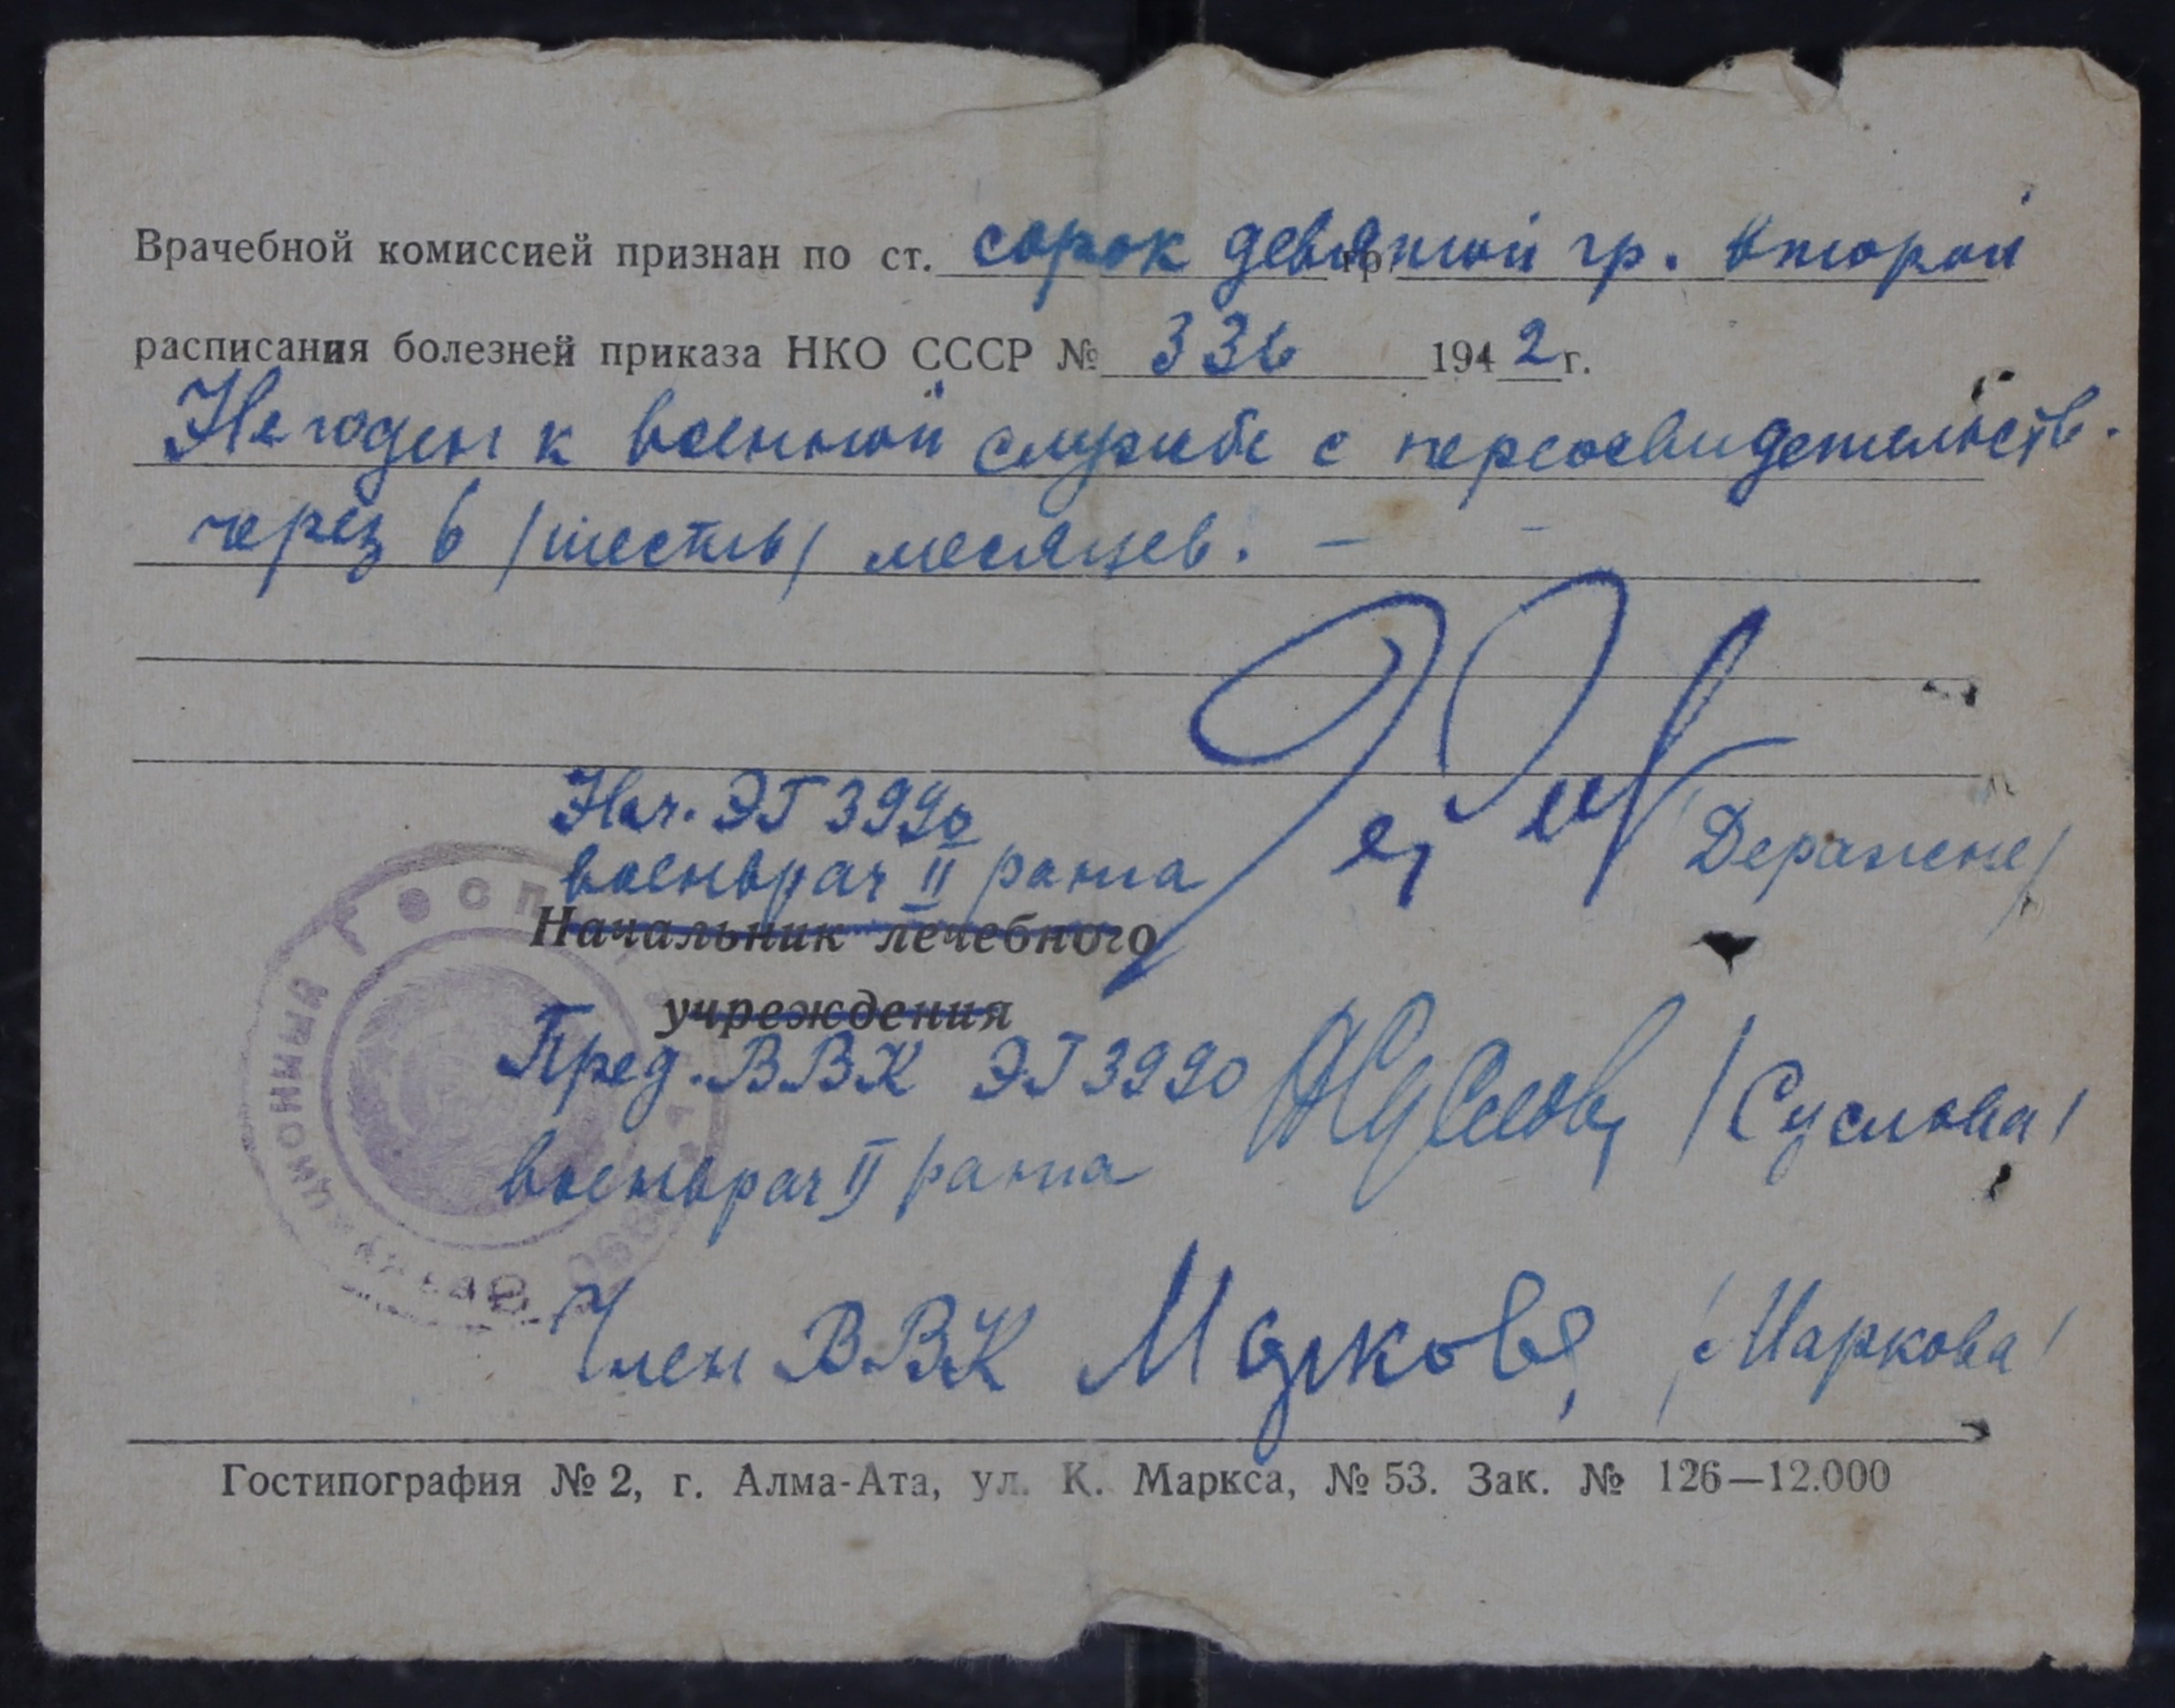 Врачебной комиссией признан по ст. сорок девятой гр. второй
расписания болезней приказа НКО СССР № 336 1942 г.
Не годен к военной службе с переосвидетельств.
через 6 /шесть/ месяцев. —
Нач. ЭГ 3990
военврач II ранга
Начальник лечебного
учреждения
Пред. ВВК ЭГ 3990 /Суслова/
военврач II ранга
Член ВВК Маркова /Маркова/
Гостипография № 2, г. Алма-Ата, ул. К. Маркса, № 53. Зак. № 126—12.000